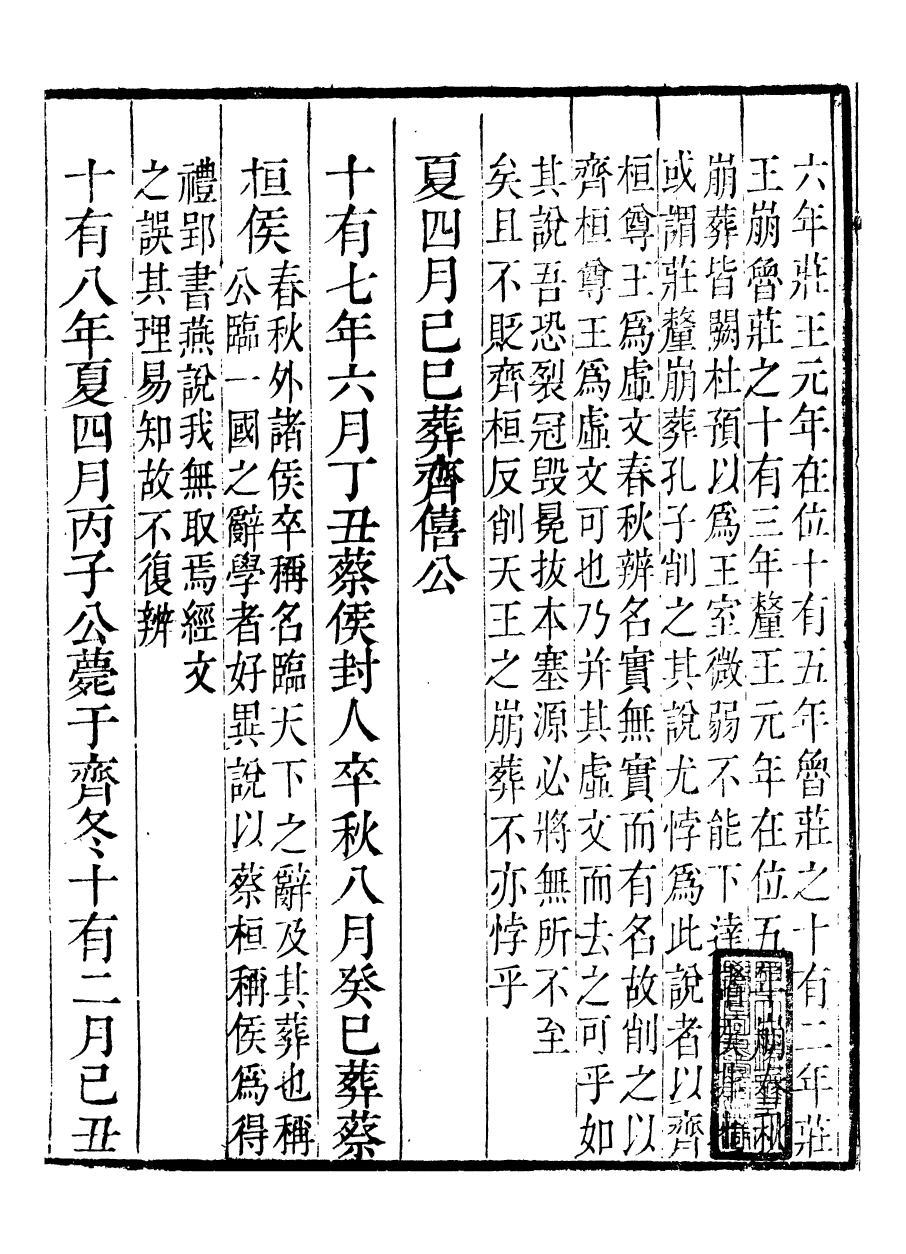 六年莊王元年在位十有五年魯莊之十有二年莊
王崩魯莊之十有三年釐王元年在位五年崩春秋
崩葬皆闕杜預以爲王室微弱不能下達諸侯
或謂莊釐崩葬孔子削之其說尤悖爲此說者以齊
桓尊王爲虛文春秋辨名實無實而有名故削之以
齊桓尊王爲虛文可也乃并其虛文而去之可乎如
其說吾恐裂冠毀冕拔本塞源必將無所不至
矣且不貶齊桓反削天王之崩葬不亦悖乎
夏四月己巳葬齊僖公
十有七年六月丁丑蔡侯封人卒秋八月癸巳葬蔡
桓侯
春秋外諸侯卒稱名臨天下之辭及其葬也稱
公臨一國之辭學者好異說以蔡桓稱侯爲得
禮郢書燕說我無取焉經文
之誤其理易知故不復辨
十有八年夏四月丙子公薨于齊冬十有二月己丑